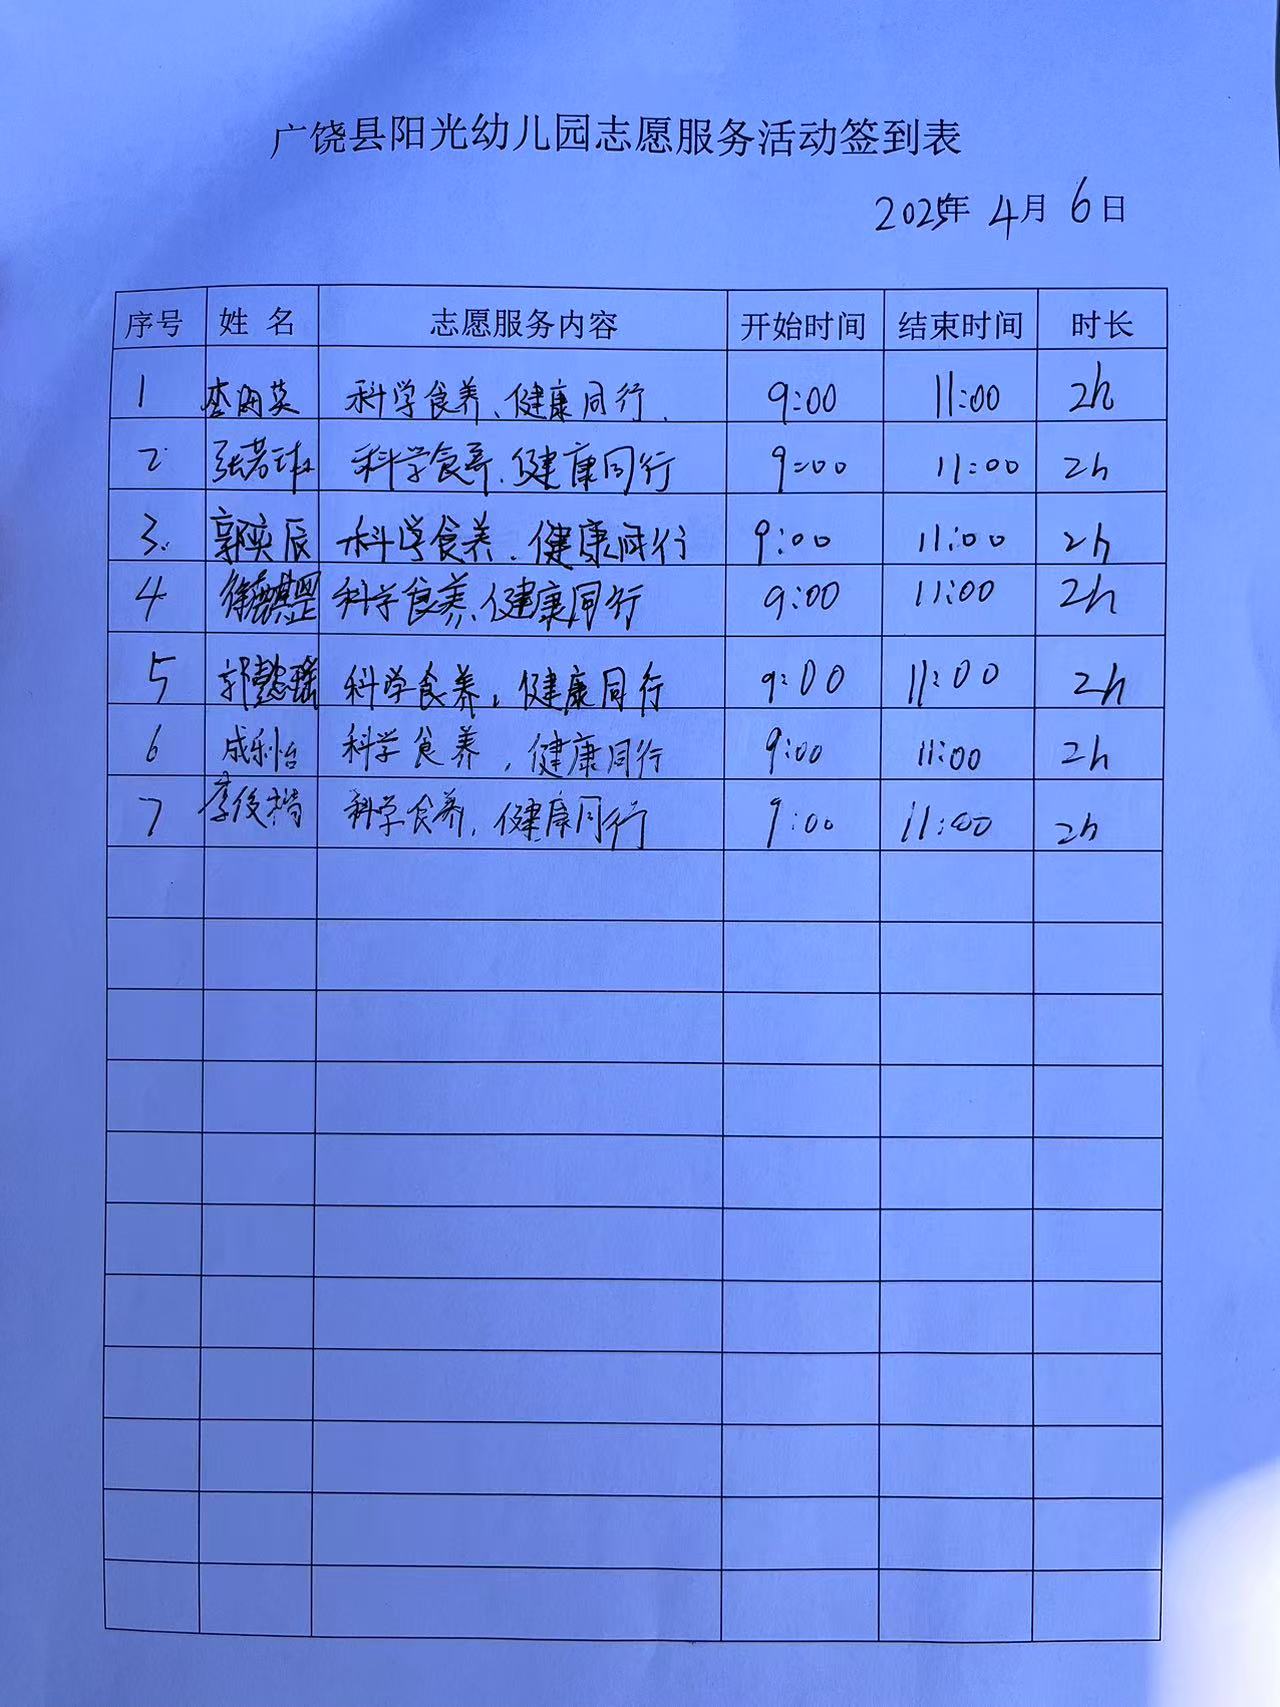 广饶县阳光幼儿园志愿服务活动签到表
2025年 4月 6日
序号 姓 名 志愿服务内容 开始时间 结束时间 时长
1 李海英 科学食养、健康同行. 9:00 11:00 2h
2 张若琳 科学食养.健康同行 9:00 11:00 2h
3. 郭奕辰 科学食养.健康同行 9:00 11:00 2h
4 科学食养、健康同行 9:00 11:00 2h
5 郭懿瑶 科学食养,健康同行 9:00 11:00 2h
6 成利怡 科学食养,健康同行 9:00 11:00 2h
7 李俊楷 科学食养,健康同行 9:00 11:00 2h